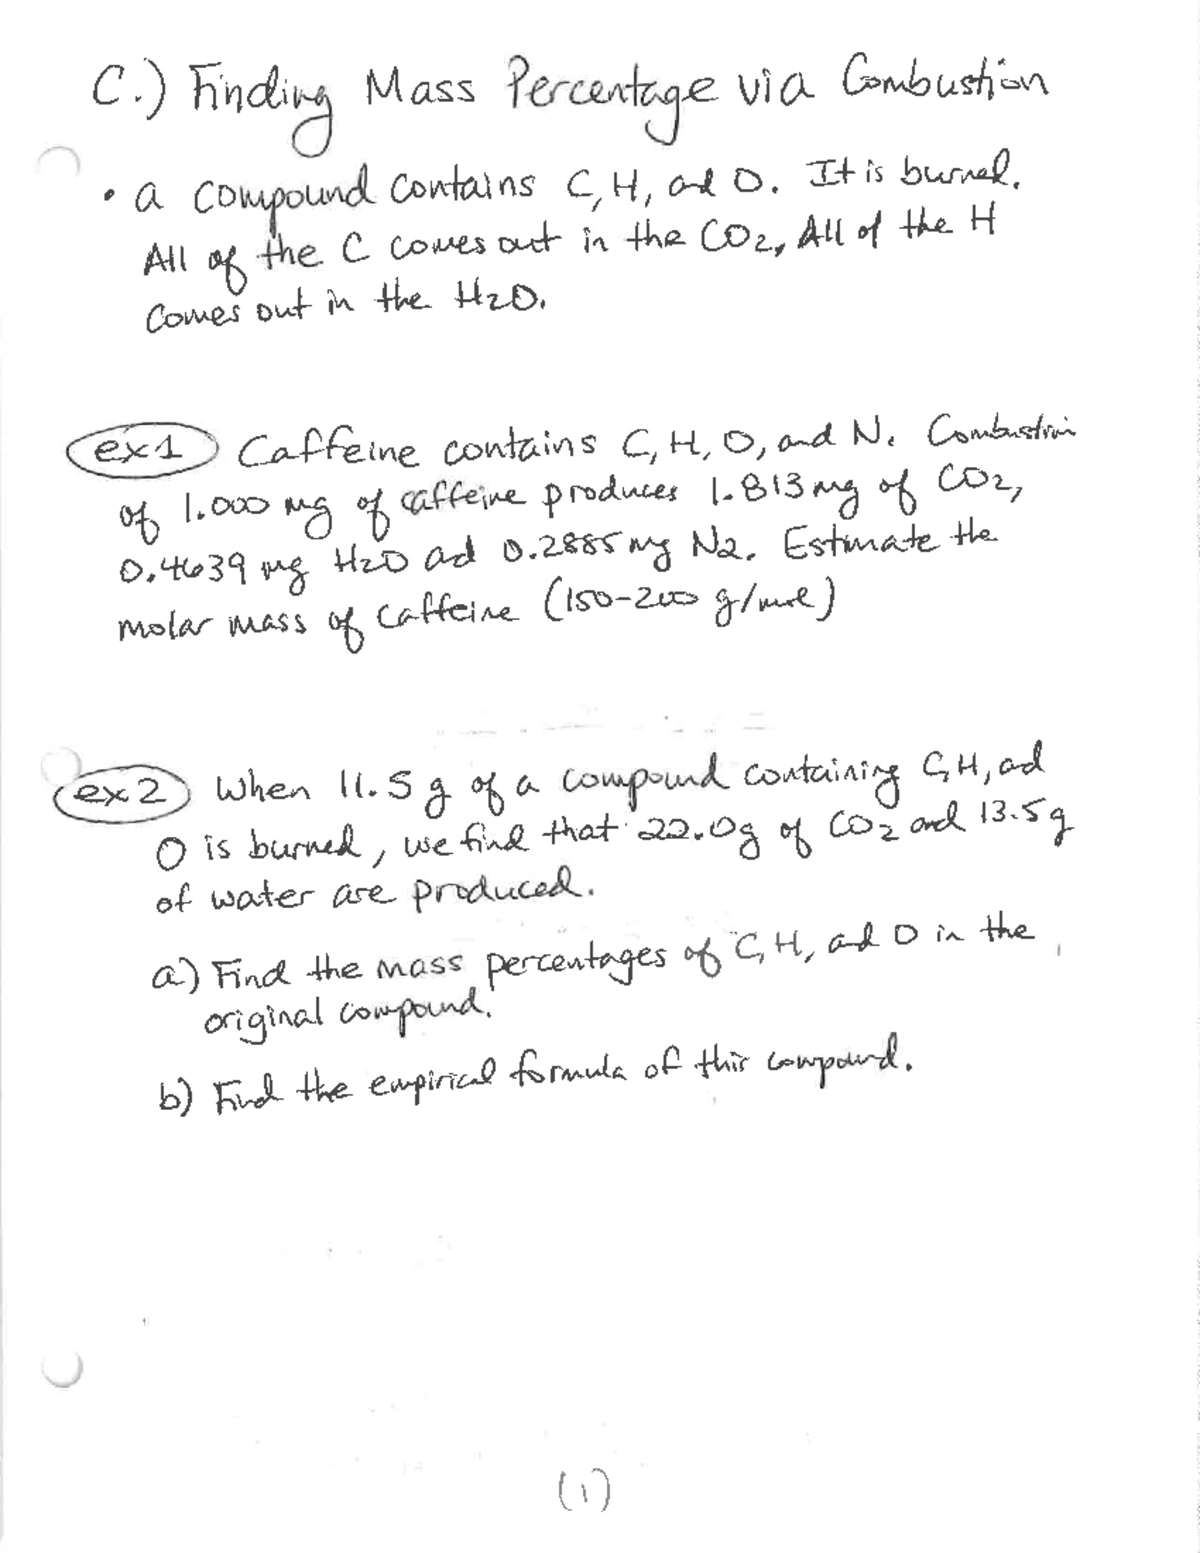 C.) Finding Mass Percentage via Combustion
• a compound contains C, H, and O. It is burned.
All of the C comes out in the CO2, All of the H
comes out in the H2O.
ex1 Caffeine contains C, H, O, and N. Combustion
of 1.000 mg of caffeine produces 1.813 mg of CO2,
0.4639 mg H2O ad 0.2885 mg N2. Estimate the
molar mass of caffeine (150-200 g/mol)
ex2 When 11.5 g of a compound containing C, H, ad
O is burned, we find that 22.0g of CO2 and 13.5 g
of water are produced.
a) Find the mass percentages of C, H, ad O in the
original compound.
b) Find the empirical formula of this compound.
(1)